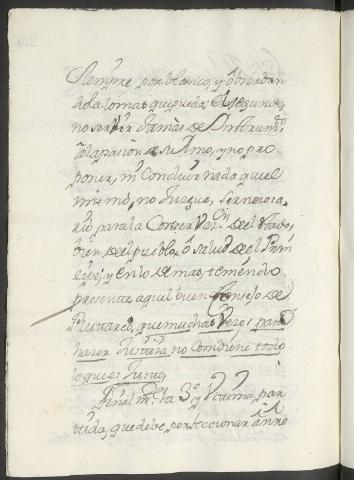 Siempre por blanco, y obserban
dola lo mas que pueda; el segundo,
no serbir jamàs de Instrum.to
à la pasion de su Amo, y no pro
poner, ni Concluir nada que el
mismo, no Juzgue, ser necesa
rio para la Conserbaz.n del estado,
bien del pueblo, ò salud del Prin
cipe; y en lo demas, teniendo
presente aquel buen Consejo de
Plutarco, que muchas Vezes para
hazer Justizia no Combiene todo
lo que es Justo,
Final m.te la 3.a y Ultima par
tida, que debe perfeccionar à nro